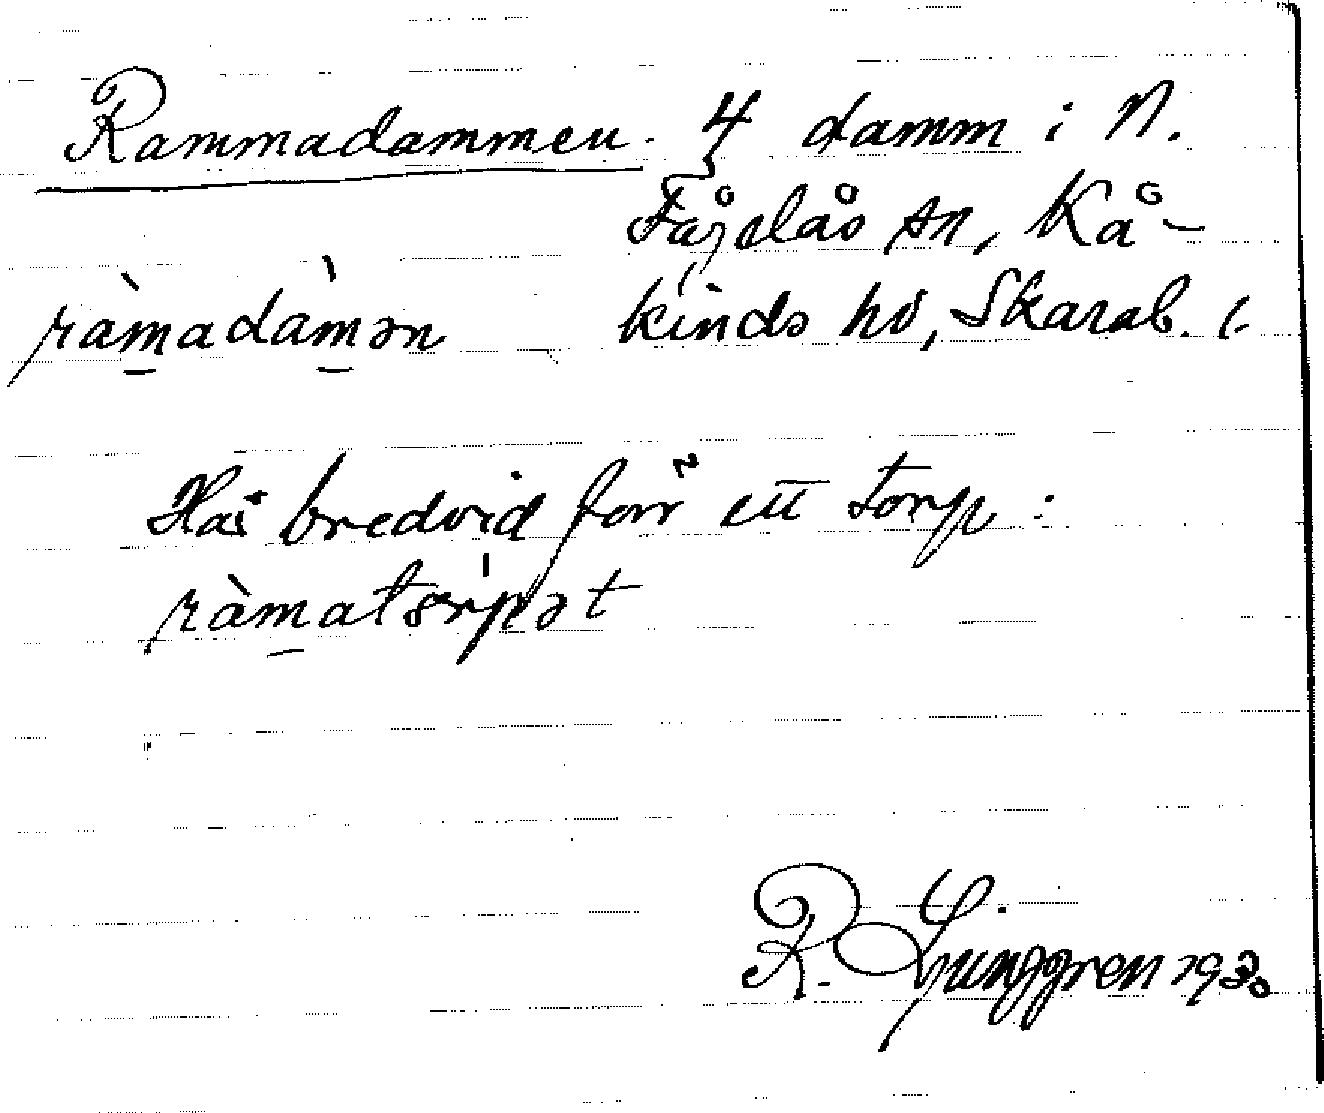 Rammadammen. 4 damm i N.
Fågelås sn, Kå-
ràmadàmən kinds hd, Skarab. l.
Här bredvid förr ett torp:
ràmatɵrpət
R. Ljunggren 1930